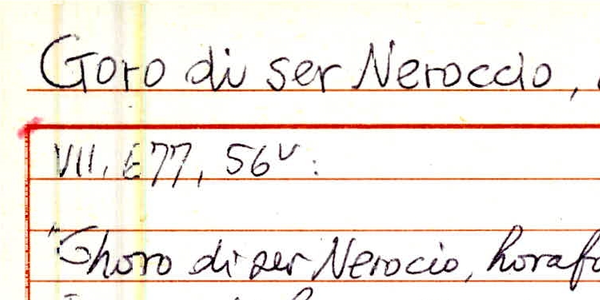 Goro di ser Neroccio,
VII, E77, 56v:
"Ghoro di ser Nerocio, horafo